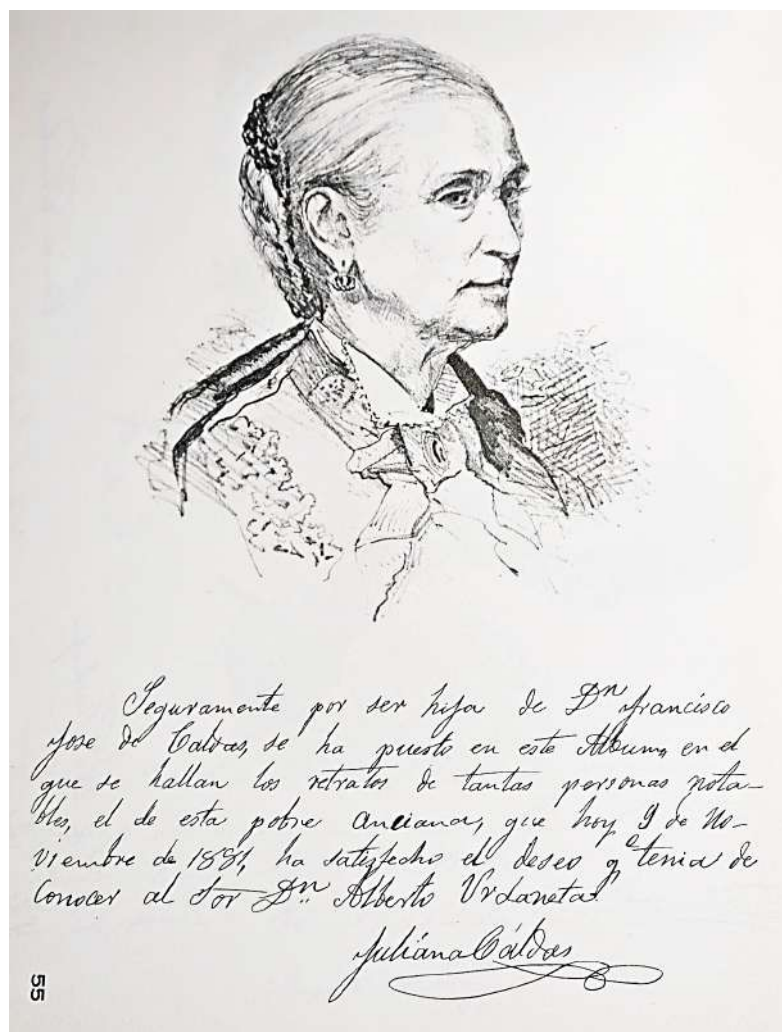 Seguramente por ser hija de Dn francisco
Jose de Caldas, se ha puesto en este Album, en el
que se hallan los retratos de tantas personas nota-
bles, el de esta pobre anciana, que hoy 9 de No-
viembre de 1881, ha satisfecho el deseo qe tenia de
Conocer al Sor Dn Alberto Urdaneta.
Juliána Cáldas
55